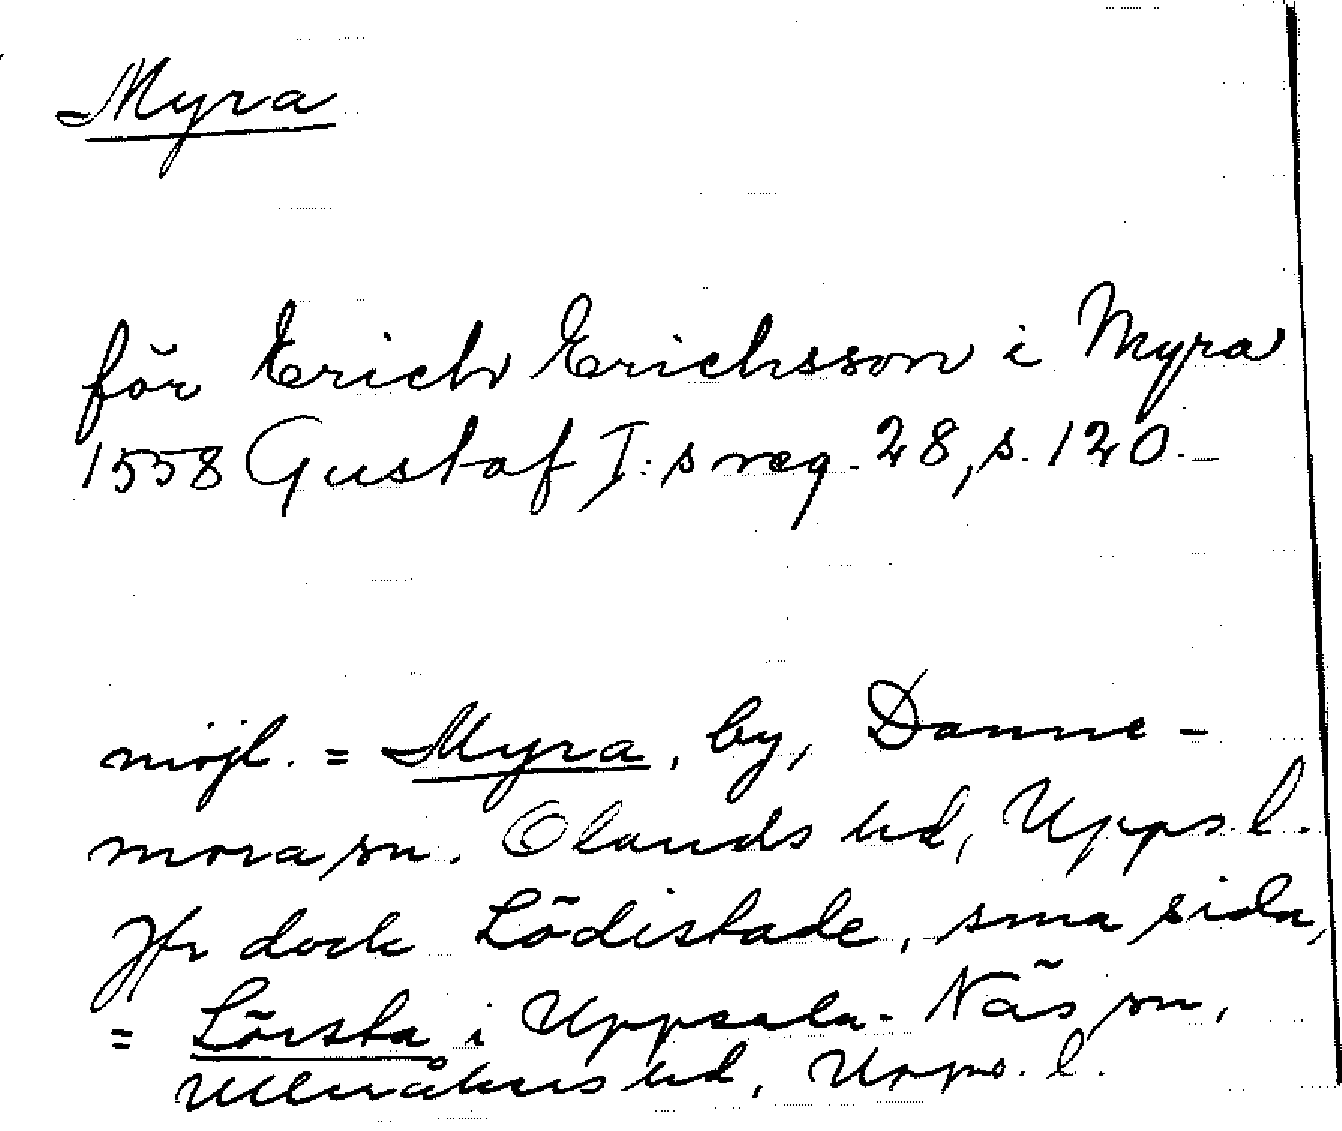 Myra
för Erich Erichsson i Myra
1558 Gustaf I:s reg. 28, s. 120.
möjl. = Myra, by, Danne-
mora sn. Olands hd, Upps l.
Jfr dock Lödistade, sma sida,
= Lörsta i Uppsala-Näs sn,
Ulleråkers hd, Upps. l.